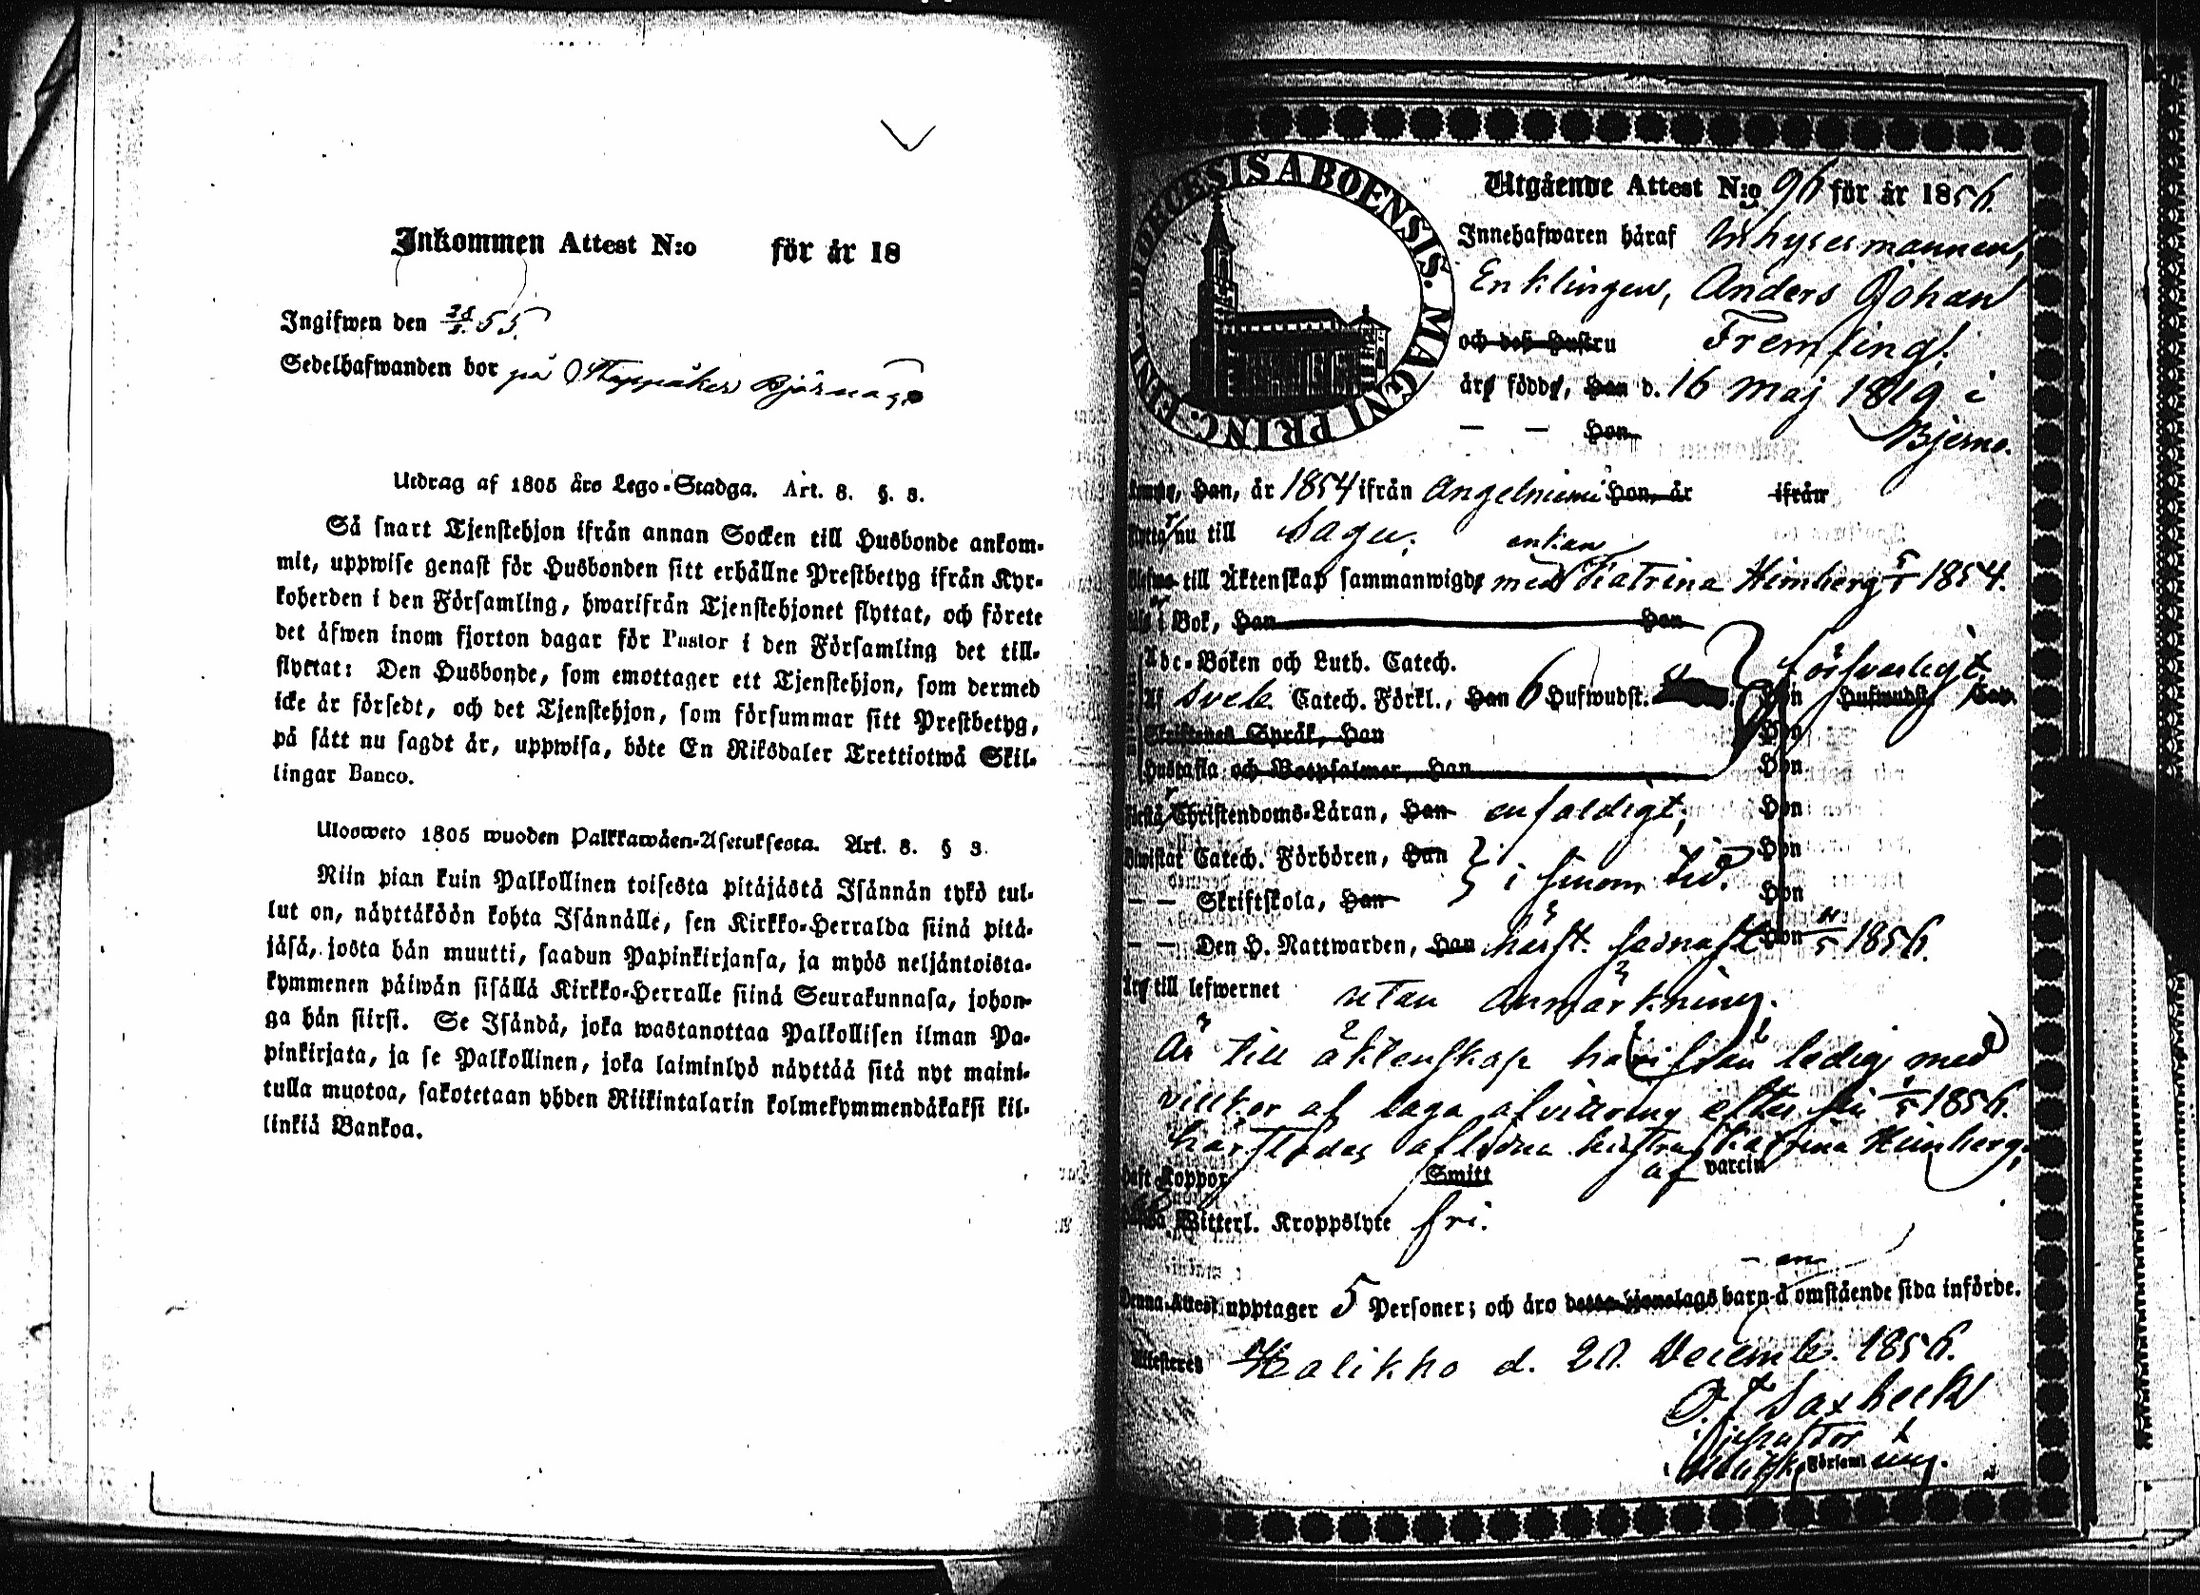 Inkommen Attest N:o för år 18
Ingifwen den 28/5. 55
Sedelhafwanden bor på Bjärnå
Utdrag af 1805 års Lego-Stadga. Art. 8. §. 3.
Så snart Tjenstehjon ifrån annan Socken till Husbonde ankom-
mit, uppwise genast för Husbonden sitt erhållne Prestbetyg ifrån Kyr-
koherden i den Församling, hwarifrån Tjenstehjonet flyttat, och förete
det äfwen inom fjorton dagar för Pastor i den Församling det till-
flyttat: Den Husbonde, som emottager ett Tjenstehjon, som dermed
icke är försedt, och det Tjenstehjon, som försummar sitt Prestbetyg,
på sätt nu sagdt är, uppwisa, böte En Riksdaler Trettiotwå Skil-
lingar Banco.
Ulosweto 1805 wuoden Palkkawäen-Asetuksesta. Art. 8. § 3.
Niin pian kuin Palkollinen toisesta pitäjästä Isännän tykö tul-
lut on, näyttäköön kohta Isännälle, sen Kirkko-Herralda siinä pitä-
jäsä, josta hän muutti, saadun Papinkirjansa, ja myös neljäntoista-
kymmenen päiwän sisällä Kirkko-Herralle siinä Seurakunnasa, johon-
ga hän siirsi. Se Isändä, joka wastanottaa Palkollisen ilman Pa-
pinkirjata, ja se Palkollinen, joka laiminlyö näyttää sitä nyt maini-
tulla muotoa, sakotetaan yhden Riikintalarin kolmekymmendäkaksi kil-
linkiä Bankoa.
DIOECESIS ABOENSIS. MAGNI PRINC. FINL.
Utgående Attest N:o 96 för år 1856.
Innehafwaren häraf Inhysesmannen,
Enklingen, Anders Johan
och deß Hustru Fremling!
äro födde, Han d. 16 Maj 1819 i
— — Hon Bjerno.
Han, år 1854 ifrån Angelniemi Hon, år ifrån
nu till Sagu.
enkan
till Äktenskap sammanwigde med Katrina Himberg 5/1 1854.
i Bok, Han Hon
Abc-Boken och Luth. Catech. försvarligt
Af Sveb. Catech. Förkl., Han 6 Hufwudst. Hon Hufwudst. Cap.
Skriftenes Språk, Han Hon
Hustafla och Botpsalmer, Han Hon
Christendoms-Läran, Han enfaldigt; Hon
Bewistat Catech. Förhören, Han Hon
— — Skriftskola, Han i sinom tid. Hon
— — Den H. Nattwarden, Han härst. sednast Hon /5 1856.
till lefwernet utan anmärkning.
Är till äktenskap härifrån ledig med
villkor af laga afvittring efter sin 1/5 1856.
härstädes aflidna hustru Katrina Himberg.
haft Koppor Smitt af vaccin
Witterl. Kroppslyte fri.
— en
Denna Attest upptager 5 Personer; och äro desse hjonelags barn å omstående sida införde.
Attesteres Halikko d. 20. Decemb. 1856.
församl ing.